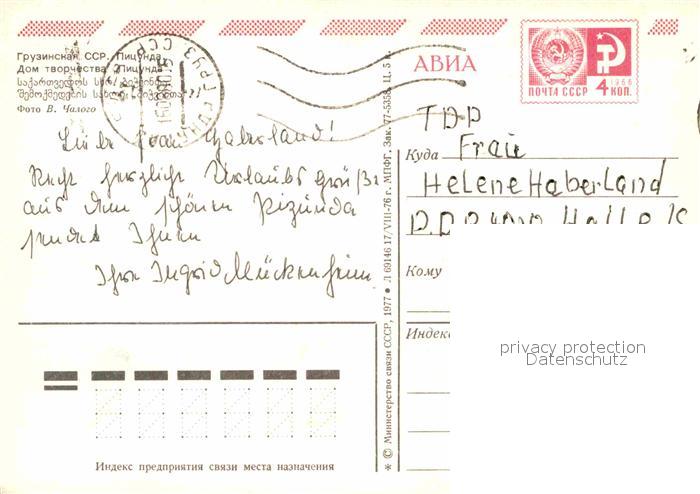 Грузинская ССР. Пицунда
Дом творчества "Пицунда"
საქართველოს სსრ. ბიჭვინთა
შემოქმედების სახლი
Фото В. Чалого
АВИА
1966
ПОЧТА СССР 4 КОП.
Liebe Frau Haberland!
Recht herzliche Urlaubsgrüße
aus dem schönen Pizunda
sendet Ihnen
Ihre Ingrid Mückenheim
TDP
Куда Frau
Helene Haberland
Кому
Индекс
Индекс предприятия связи места назначения
* © Министерство связи СССР, 1977 • Л 69146 17/VIII-76 г. МПФГ. Зак. 77-5358. Ц. 5 к.
privacy protection
Datenschutz